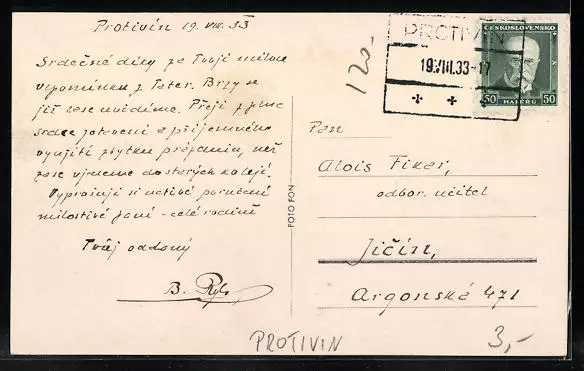 Protivín 19. VIII. 33
Srdečné díky za Tvoji milou
vzpomínku z Tater. Brzy se
již zase uvidíme. Přeji z plna
srdce zotavení a příjemného
využití zbytku prázdnin, než
zase vjedeme do starých kolejí.
Vyprošuji si uctivé poručení
milostivé paní - celé rodině
Tvůj oddaný
B.
FOTO FON
PROTIVÍN
19.VIII.33-17
ČESKOSLOVENSKO
50 HALÉŘŮ 50
120.-
Pan
Alois Fiker,
odbor. učitel
Jičín,
Argonská 471
PROTIVIN
3,-